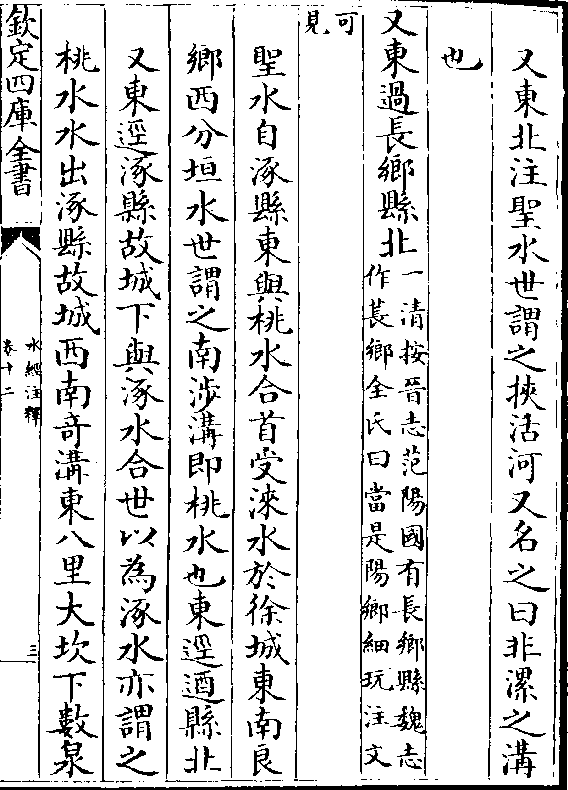 又東北注聖水世謂之挾活河又名之曰非漯之溝
也
又東過長鄉縣北一清按晉志范陽國有長鄉縣魏志
作萇鄉全氏曰當是陽鄉細玩注文
可見
聖水自涿縣東與桃水合首受淶水於徐城東南良
鄉西分垣水世謂之南涉溝即桃水也東逕遒縣北
又東逕涿縣故城下與涿水合世以為涿水亦謂之
桃水水出涿縣故城西南奇溝東八里大坎下數泉
欽定四庫全書
水經注釋
卷十二
三